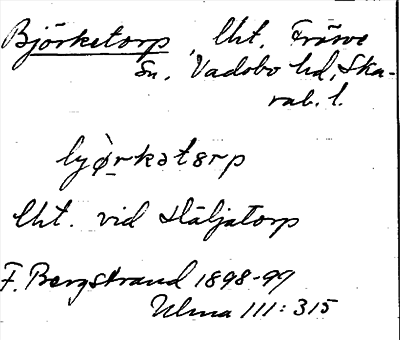 Björketorp, Lht. Fräsve
Sn. Vadsbo hd, Ska-
rab. l.
byø̀rkətɵrp
Lht. vid Häljatorp
F. Bergstrand 1898-99
Ulma 111:315